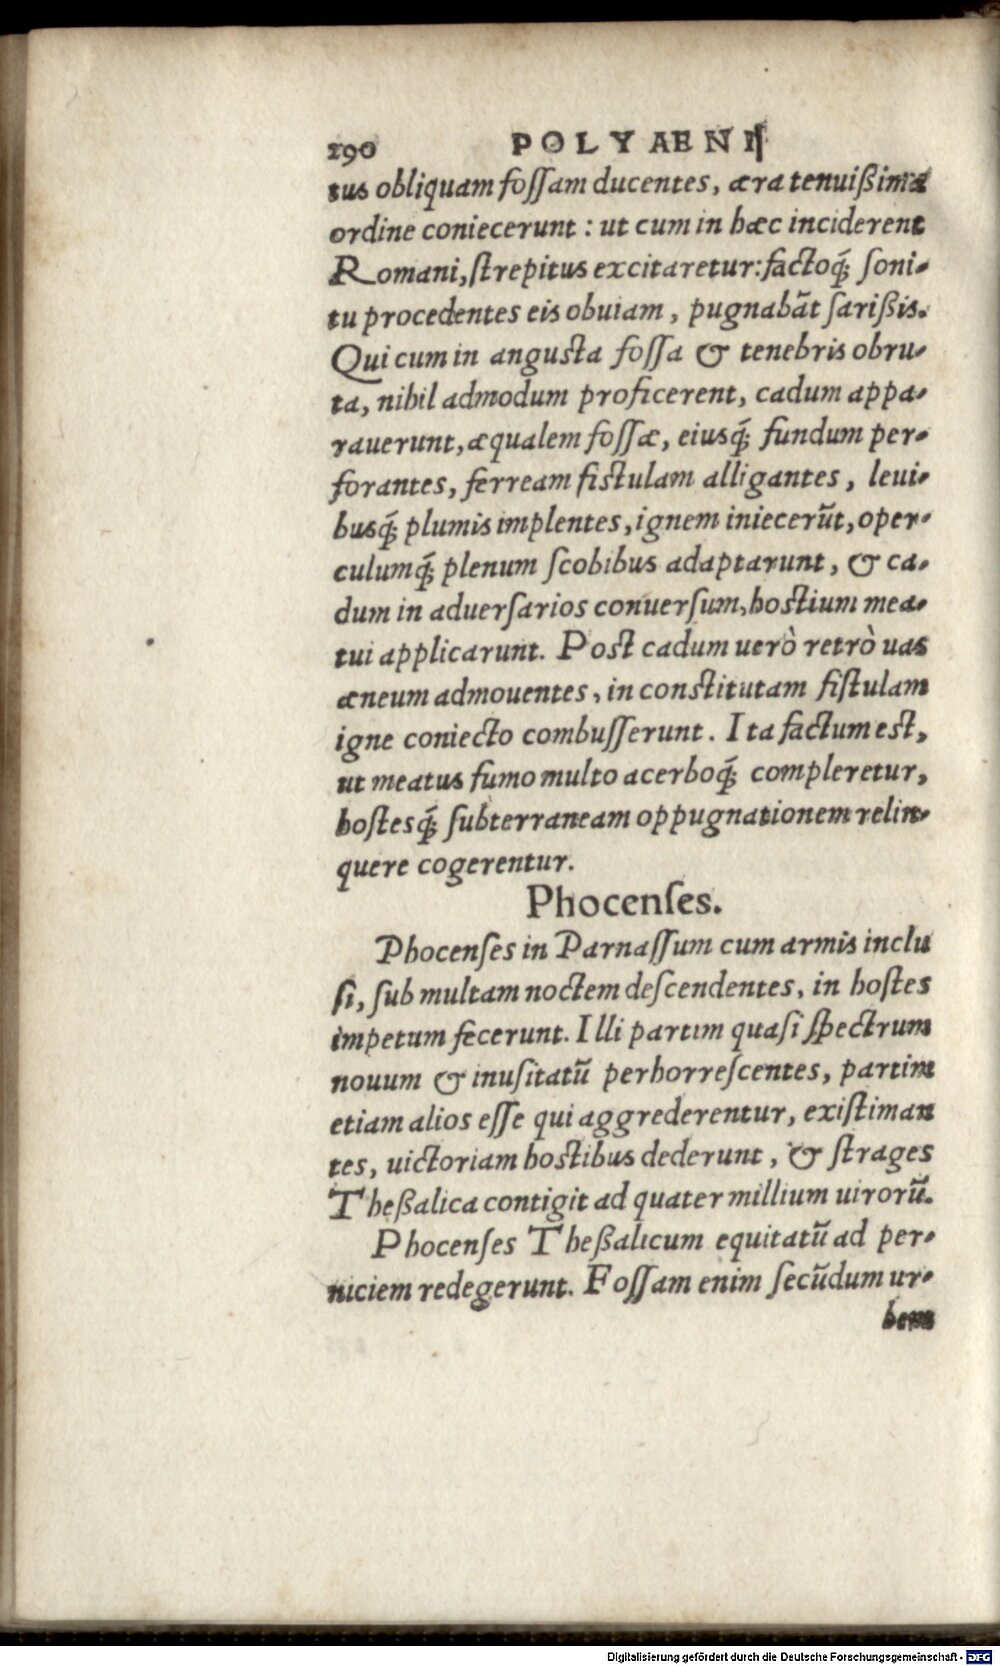 190 POLYAENI
tus obliquam foſſam ducentes, æra tenuißima
ordine coniecerunt : ut cum in hæc inciderent
Romani, ſtrepitus excitaretur: factoq́; ſoni-
tu procedentes eis obuiam, pugnabāt ſarißis.
Qui cum in angusta foſſa & tenebris obru-
ta, nihil admodum proficerent, cadum appa-
rauerunt, æqualem foſſæ, eiusq́; fundum per-
forantes, ferream fistulam alligantes, leui-
busq́; plumis implentes, ignem iniecerūt, oper-
culumq́; plenum ſcobibus adaptarunt, & ca-
dum in aduerſarios conuerſum, hostium mea-
tui applicarunt. Post cadum uerò retrò uas
æneum admouentes, in constitutam fiſtulam
igne coniecto combuſſerunt. Ita factum est,
ut meatus fumo multo acerboq́; compleretur,
hoſtesq́; ſubterraneam oppugnationem relin-
quere cogerentur.
Phocenſes.
Phocenſes in Parnaſſum cum armis inclu
ſi, ſub multam noctem deſcendentes, in hoſtes
impetum fecerunt. Illi partim quaſi ſpectrum
nouum & inuſitatū perhorreſcentes, partim
etiam alios eſſe qui aggrederentur, exiſtiman
tes, uictoriam hostibus dederunt, & ſtrages
Theßalica contigit ad quater millium uirorū.
Phocenſes Theßalicum equitatū ad per-
niciem redegerunt. Foſſam enim ſecūdum ur-
bem
Digitalisierung gefördert durch die Deutsche Forschungsgemeinschaft - DFG